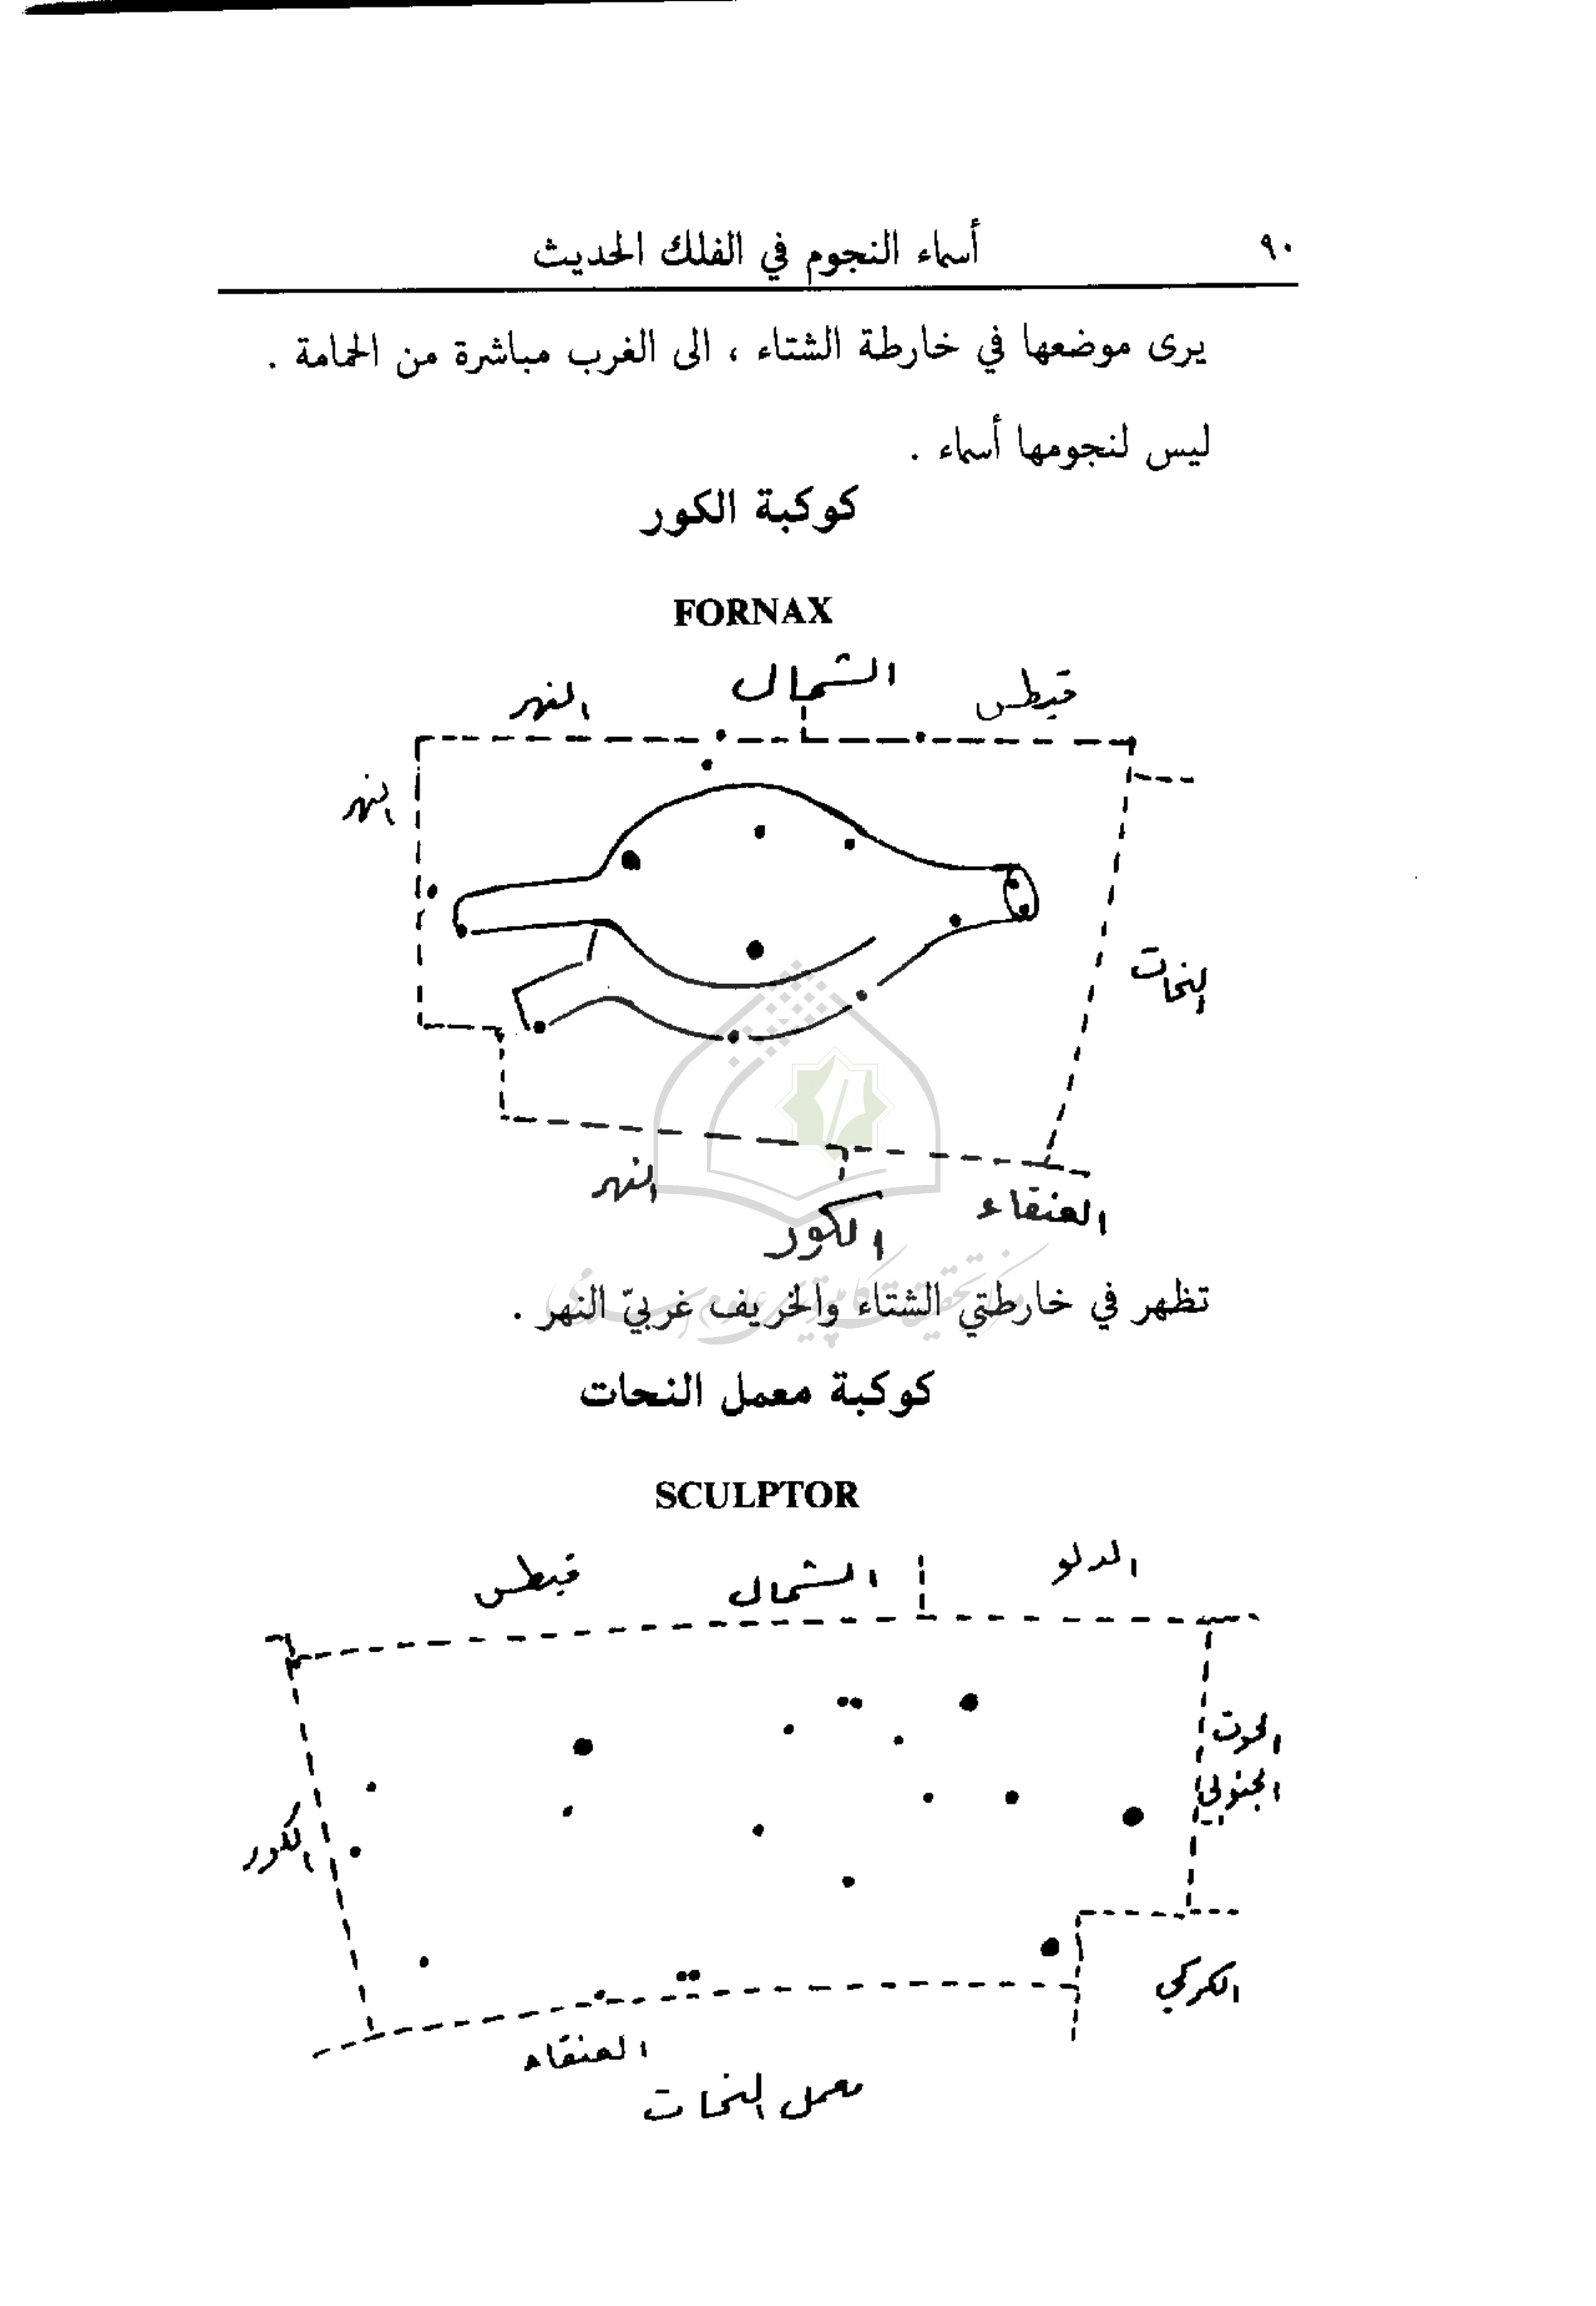 ٩٠
أسماء النجوم في الفلك الحديث
يرى موضعها في خارطة الشتاء ، الى الغرب مباشرة من الحمامة .
ليس لنجومها أسماء .
كوكبة الكور
FORNAX
قيطس
الشمال
النهر
النهر
النحات
العنقاء
النهر
الكور
تظهر في خارطتي الشتاء والخريف غربيّ النهر .
كوكبة معمل النحات
SCULPTOR
الدلو
الشمال
قيطس
الحوت
الجنوبي
الكور
الكركي
العنقاء
معمل النحات